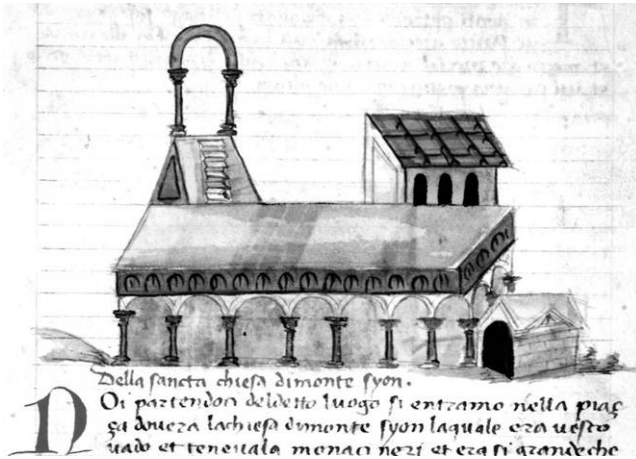 Della sancta chiesa dimonte syon.
Noi partendoci deldetto luogo si entramo nella piaç
ça dovera lachiesa dimonte syon laquale era vesco
vado et tenevala monaci neri et era si grande che